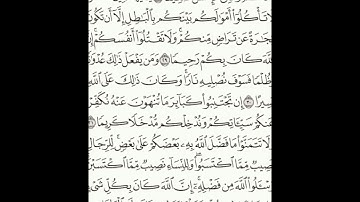 لَا تَأْكُلُوٓا۟ أَمْوَٰلَكُم بَيْنَكُم بِٱلْبَٰطِلِ إِلَّآ أَن تَكُونَ
تِجَٰرَةً عَن تَرَاضٍ مِّنكُمْ ۚ وَلَا تَقْتُلُوٓا۟ أَنفُسَكُمْ ۚ إِنَّ
ٱللَّهَ كَانَ بِكُمْ رَحِيمًا ٢٩ وَمَن يَفْعَلْ ذَٰلِكَ عُدْوَٰنًا
وَظُلْمًا فَسَوْفَ نُصْلِيهِ نَارًا ۚ وَكَانَ ذَٰلِكَ عَلَى ٱللَّهِ
يَسِيرًا ٣٠ إِن تَجْتَنِبُوا۟ كَبَآئِرَ مَا تُنْهَوْنَ عَنْهُ نُكَفِّرْ
عَنكُمْ سَيِّـَٔاتِكُمْ وَنُدْخِلْكُم مُّدْخَلًا كَرِيمًا ٣١
وَلَا تَتَمَنَّوْا۟ مَا فَضَّلَ ٱللَّهُ بِهِۦ بَعْضَكُمْ عَلَىٰ بَعْضٍ ۚ لِّلرِّجَالِ
نَصِيبٌ مِّمَّا ٱكْتَسَبُوا۟ ۖ وَلِلنِّسَآءِ نَصِيبٌ مِّمَّا ٱكْتَسَبْنَ ۚ
وَسْـَٔلُوا۟ ٱللَّهَ مِن فَضْلِهِۦٓ ۗ إِنَّ ٱللَّهَ كَانَ بِكُلِّ شَىْءٍ